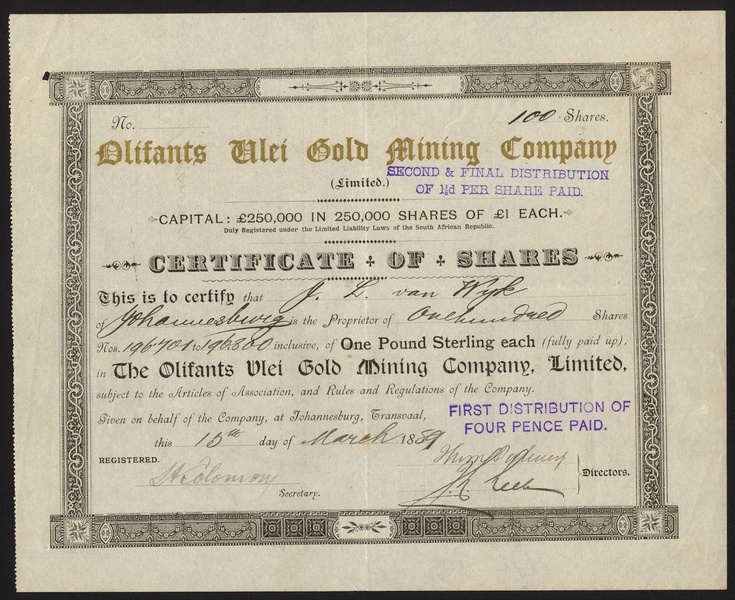 No. 100 Shares.
Olifants Vlei Gold Mining Company
(Limited.)
SECOND & FINAL DISTRIBUTION
OF 1½d PER SHARE PAID.
CAPITAL: £250,000 IN 250,000 SHARES OF £1 EACH.
Duly Registered under the Limited Liability Laws of the South African Republic.
CERTIFICATE OF SHARES
This is to certify that J. L. van Wyk
of Johannesburg is the Proprietor of One hundred Shares
Nos. 196701 to 196800 inclusive, of One Pound Sterling each (fully paid up),
in The Olifants Vlei Gold Mining Company, Limited,
subject to the Articles of Association, and Rules and Regulations of the Company.
Given on behalf of the Company, at Johannesburg, Transvaal,
this 15th day of March 1889
FIRST DISTRIBUTION OF
FOUR PENCE PAID.
REGISTERED.
Solomon
Secretary.
Directors.